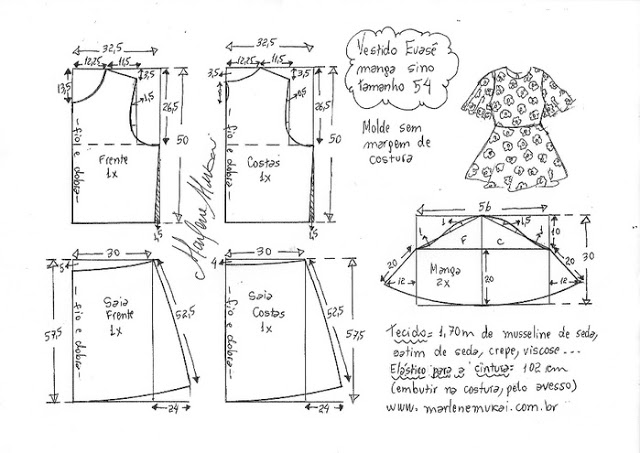 32,5
12,25
11,5
13,5
3,5
1,5
26,5
50
fio e dobra
Frente
1x
1,5
32,5
12,25
11,5
3,5
3,5
26,5
50
fio e dobra
Costas
1x
1,5
Marlene Mukai
Vestido Evasê
manga sino
tamanho 54
Molde sem
margem de
costura
56
1
1,5
1
1
10
30
F
C
20
20
12
12
Manga
2x
20
30
5
57,5
Saia
Frente
1x
fio e dobra
52,5
24
30
4
Saia
Costas
1x
fio e dobra
52,5
57,5
24
Tecido= 1,70m de musseline de seda,
cetim de seda, crepe, viscose...
Elástico para a cintura= 102 cm
(embutir na costura, pelo avesso)
www. marlenemukai.com.br